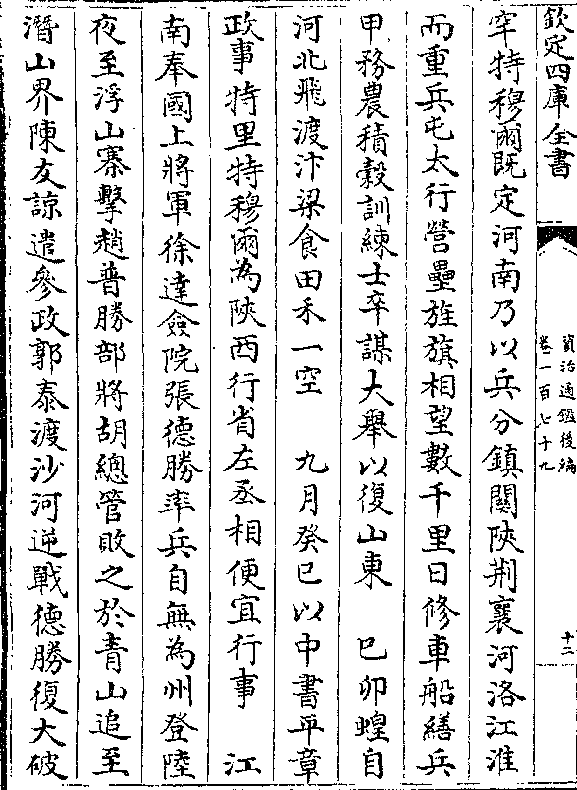 欽定四庫全書
資治通鑑後編
卷一百七十九
十二
罕特穆爾既定河南乃以兵分鎮關陜荆襄河洛江淮
而重兵屯太行營壘旌旗相望數千里日修車船繕兵
甲務農積穀訓練士卒謀大舉以復山東　己卯蝗自
河北飛渡汴梁食田禾一空　九月癸巳以中書平章
政事特里特穆爾為陜西行省左丞相便宜行事　江
南奉國上將軍徐達僉院張德勝率兵自無為州登陸
夜至浮山寨擊趙普勝部將胡總管敗之於青山追至
潛山界陳友諒遣參政郭泰渡沙河逆戰德勝復大破